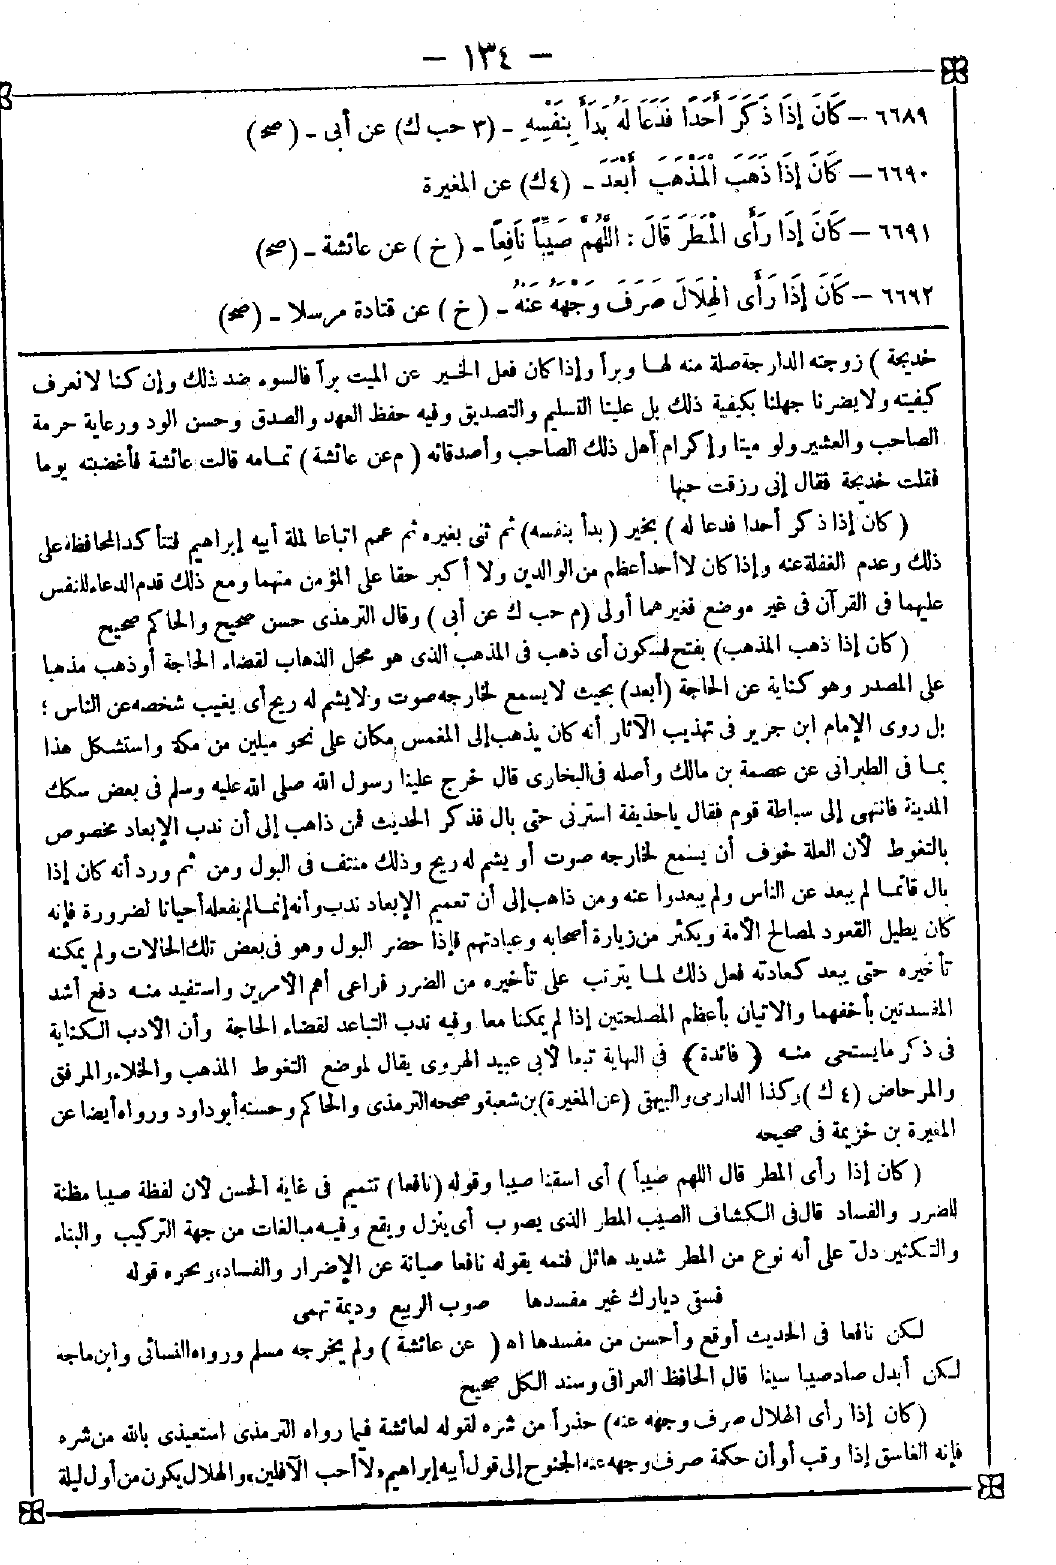 – ١٣٤ –
٦٦٨٩ – كَانَ إِذَا ذَكَرَ أَحَدًا فَدَعَا لَهُ بَدَأَ بِنَفْسِهِ – (٣ حب ك) عن أبى – (صح)
٦٦٩٠ – كَانَ إِذَا ذَهَبَ الْمَذْهَبَ أَبْعَدَ – (٤ك) عن المغيرة
٦٦٩١ – كَانَ إِذَا رَأَى الْمَطَرَ قَالَ : اللَّهُمَّ صَيِّبًا نَافِعًا – (خ) عن عائشة – (صح)
٦٦٩٢ – كَانَ إِذَا رَأَى الْهِلَالَ صَرَفَ وَجْهَهُ عَنْهُ – (خ) عن قتادة مرسلا – (صح)
خديجة ) زوجته الدارجة صلة منه لها وبرا وإذا كان فعل الخير عن الميت برا فالسوء ضد ذلك وإن كنا لا نعرف
كيفيته ولا يضرنا جهلنا بكيفية ذلك بل علينا التسليم والتصديق وفيه حفظ العهد والصدق وحسن الود ورعاية حرمة
الصاحب والعشير ولو ميتا وإكرام أهل ذلك الصاحب وأصدقائه ( م عن عائشة ) تمامه قالت عائشة فأغضبته يوما
فقلت خديجة فقال إنى رزقت حبها
( كان إذا ذكر أحدا فدعا له ) بخير ( بدأ بنفسه) ثم ثنى بغيره ثم عمم اتباعا لملة أبيه إبراهيم فتتأكد المحافظة على
ذلك وعدم الغفلة عنه وإذا كان لا أحد أعظم من الوالدين ولا أكبر حقا على المؤمن منهما ومع ذلك قدم الدعاء للنفس
عليهما فى القرآن فى غير موضع فغيرهما أولى (م حب ك عن أبى ) وقال الترمذى حسن صحيح والحاكم صحيح
(كان إذا ذهب المذهب) بفتح فسكون أى ذهب فى المذهب الذى هو محل الذهاب لقضاء الحاجة أو ذهب مذهبا
على المصدر وهو كناية عن الحاجة (أبعد) بحيث لا يسمع لخارجه صوت ولا يشم له ريح أى يغيب شخصه عن الناس ؛
بل روى الإمام ابن جرير فى تهذيب الآثار أنه كان يذهب إلى المغمس مكان على نحو ميلين من مكة واستشكل هذا
بما فى الطبرانى عن عصمة بن مالك وأصله فى البخارى قال خرج علينا رسول الله صلى الله عليه وسلم فى بعض سكك
المدينة فانتهى إلى سباطة قوم فقال يا حذيفة استرنى حتى بال فذكر الحديث فمن ذاهب إلى أن ندب الإبعاد مخصوص
بالتغوط لأن العلة خوف أن يسمع لخارجه صوت أو يشم له ريح وذلك منتف فى البول ومن ثم ورد أنه كان إذا
بال قائما لم يبعد عن الناس ولم يبعدوا عنه ومن ذاهب إلى أن تعميم الإبعاد ندب وأنه إنما لم يفعله أحيانا لضرورة فإنه
كان يطيل القعود لمصالح الأمة ويكثر من زيارة أصحابه وعيادتهم فإذا حضر البول وهو فى بعض تلك الحالات ولم يمكنه
تأخيره حتى يبعد كعادته فعل ذلك لما يترتب على تأخيره من الضرر فراعى أهم الأمرين واستفيد منه دفع أشد
المفسدتين بأخفهما والاتيان بأعظم المصلحتين إذا لم يمكنا معا وفيه ندب التباعد لقضاء الحاجة وأن الأدب الكناية
فى ذكر ما يستحى منه ( فائدة) فى النهاية تبعا لأبى عبيد الهروى يقال لموضع التغوط المذهب والخلاء والمرفق
والمرحاض ( ٤ ك ) وكذا الدارمى والبيهقى (عن المغيرة) بن شعبة وصححه الترمذى والحاكم وحسنه أبو داود ورواه أيضا عن
المغيرة بن خزيمة فى صحيحه
( كان إذا رأى المطر قال اللهم صيباً ) أى اسقنا صيبا وقوله (نافعا) تتميم فى غاية الحسن لأن لفظة صيبا مظنة
للضرر والفساد قال فى الكشاف الصيب المطر الذى يصوب أى ينزل ويقع وفيه مبالغات من جهة التركيب والبناء
والتكثير دل على أنه نوع من المطر شديد هائل فتمه بقوله نافعا صيانة عن الإضرار والفساد، ونحوه قوله
فسقى ديارك غير مفسدها صوب الربيع وديمة تهمى
لكن نافعا فى الحديث أوقع وأحسن من مفسدها اه ( عن عائشة ) ولم يخرجه مسلم ورواه النسائى وابن ماجه
لكن أبدل صاد صيبا سينا قال الحافظ العراقى وسند الكل صحيح
(كان إذا رأى الهلال صرف وجهه عنه) حذراً من شره لقوله لعائشة فيما رواه الترمذى استعيذى بالله من شره
فإنه الغاسق إذا وقب أو أن حكمة صرف وجهه عنه الجنوح إلى قول أبيه إبراهيم «لا أحب الآفلين» والهلال يكون من أول ليلة